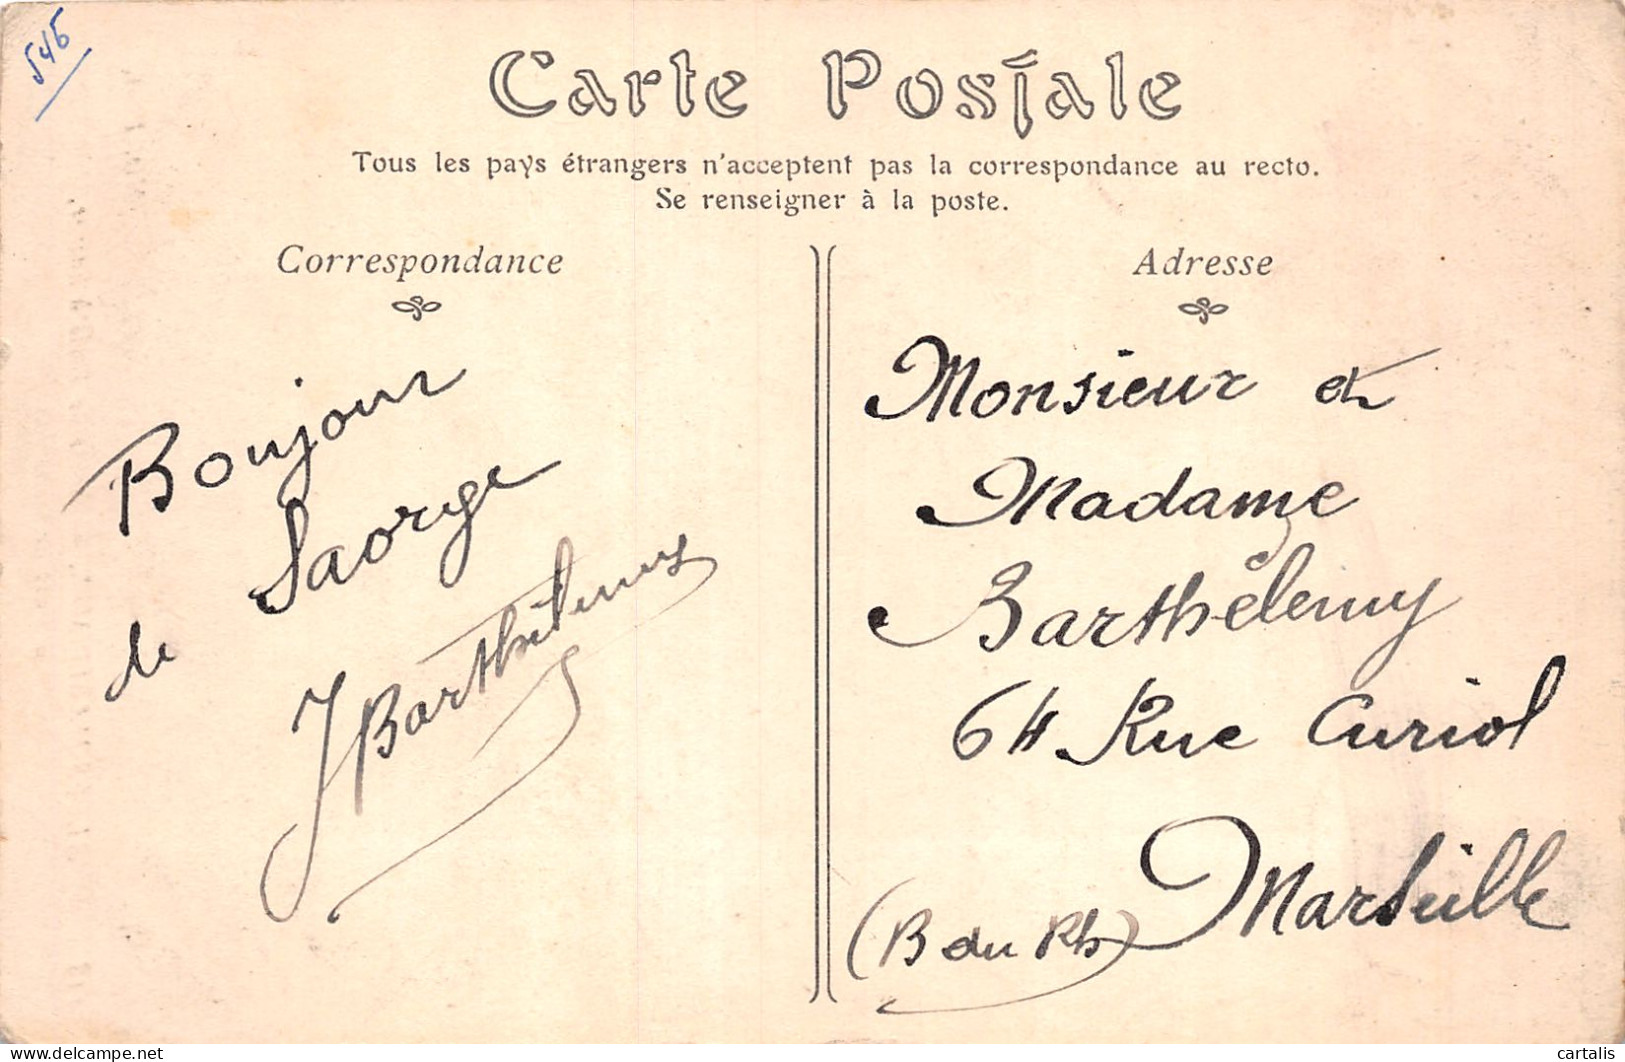 545
Carte Postale
Tous les pays étrangers n'acceptent pas la correspondance au recto.
Se renseigner à la poste.
Correspondance
Bonjour
de Saorge
J Barthélemy
Adresse
Monsieur et
Madame
Barthélemy
64 Rue Curiol
Marseille
(B du Rh)
delcampe.net
cartalis